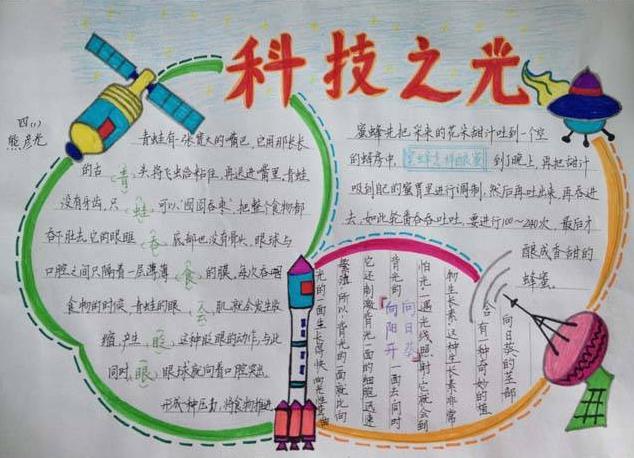 科技之光
四(1)
熊彦光
青蛙有一张宽大的嘴巴,它用那长长
的舌头将飞虫给粘住,再送进嘴里,青蛙
没有牙齿,只可以“囫囵吞枣”,把整个食物都
吞下肚去,它的眼眶底部也没有骨头,眼球与
口腔之间只隔着一层薄薄的膜,每次吞咽
食物的时候,青蛙的眼肌就会发生收
缩,产生这种眨眼的动作,与此
同时,眼球就向着口腔突出,
形成一种压力,将食物推进
青
蛙
吞
食
会
眨
眼
蜜蜂先把采来的花朵甜汁吐到一个空
的蜂房中,到了晚上,再把甜汁
吸到自己的蜜胃里进行调制,然后再吐出来,再吞进
去,如此轮番吞吞吐吐,要进行100~240次,最后才
酿成香甜的
蜂蜜。
蜜蜂怎样酿蜜
向日葵的茎部
含有一种奇妙的植
物生长素,这种生长素非常
怕光,一遇光线照射,它就会到
背光的一面去,同时
它还刺激背光一面的细胞迅速
繁殖,所以,背光的一面就比向
光的一面生长得快
向日葵
向阳开